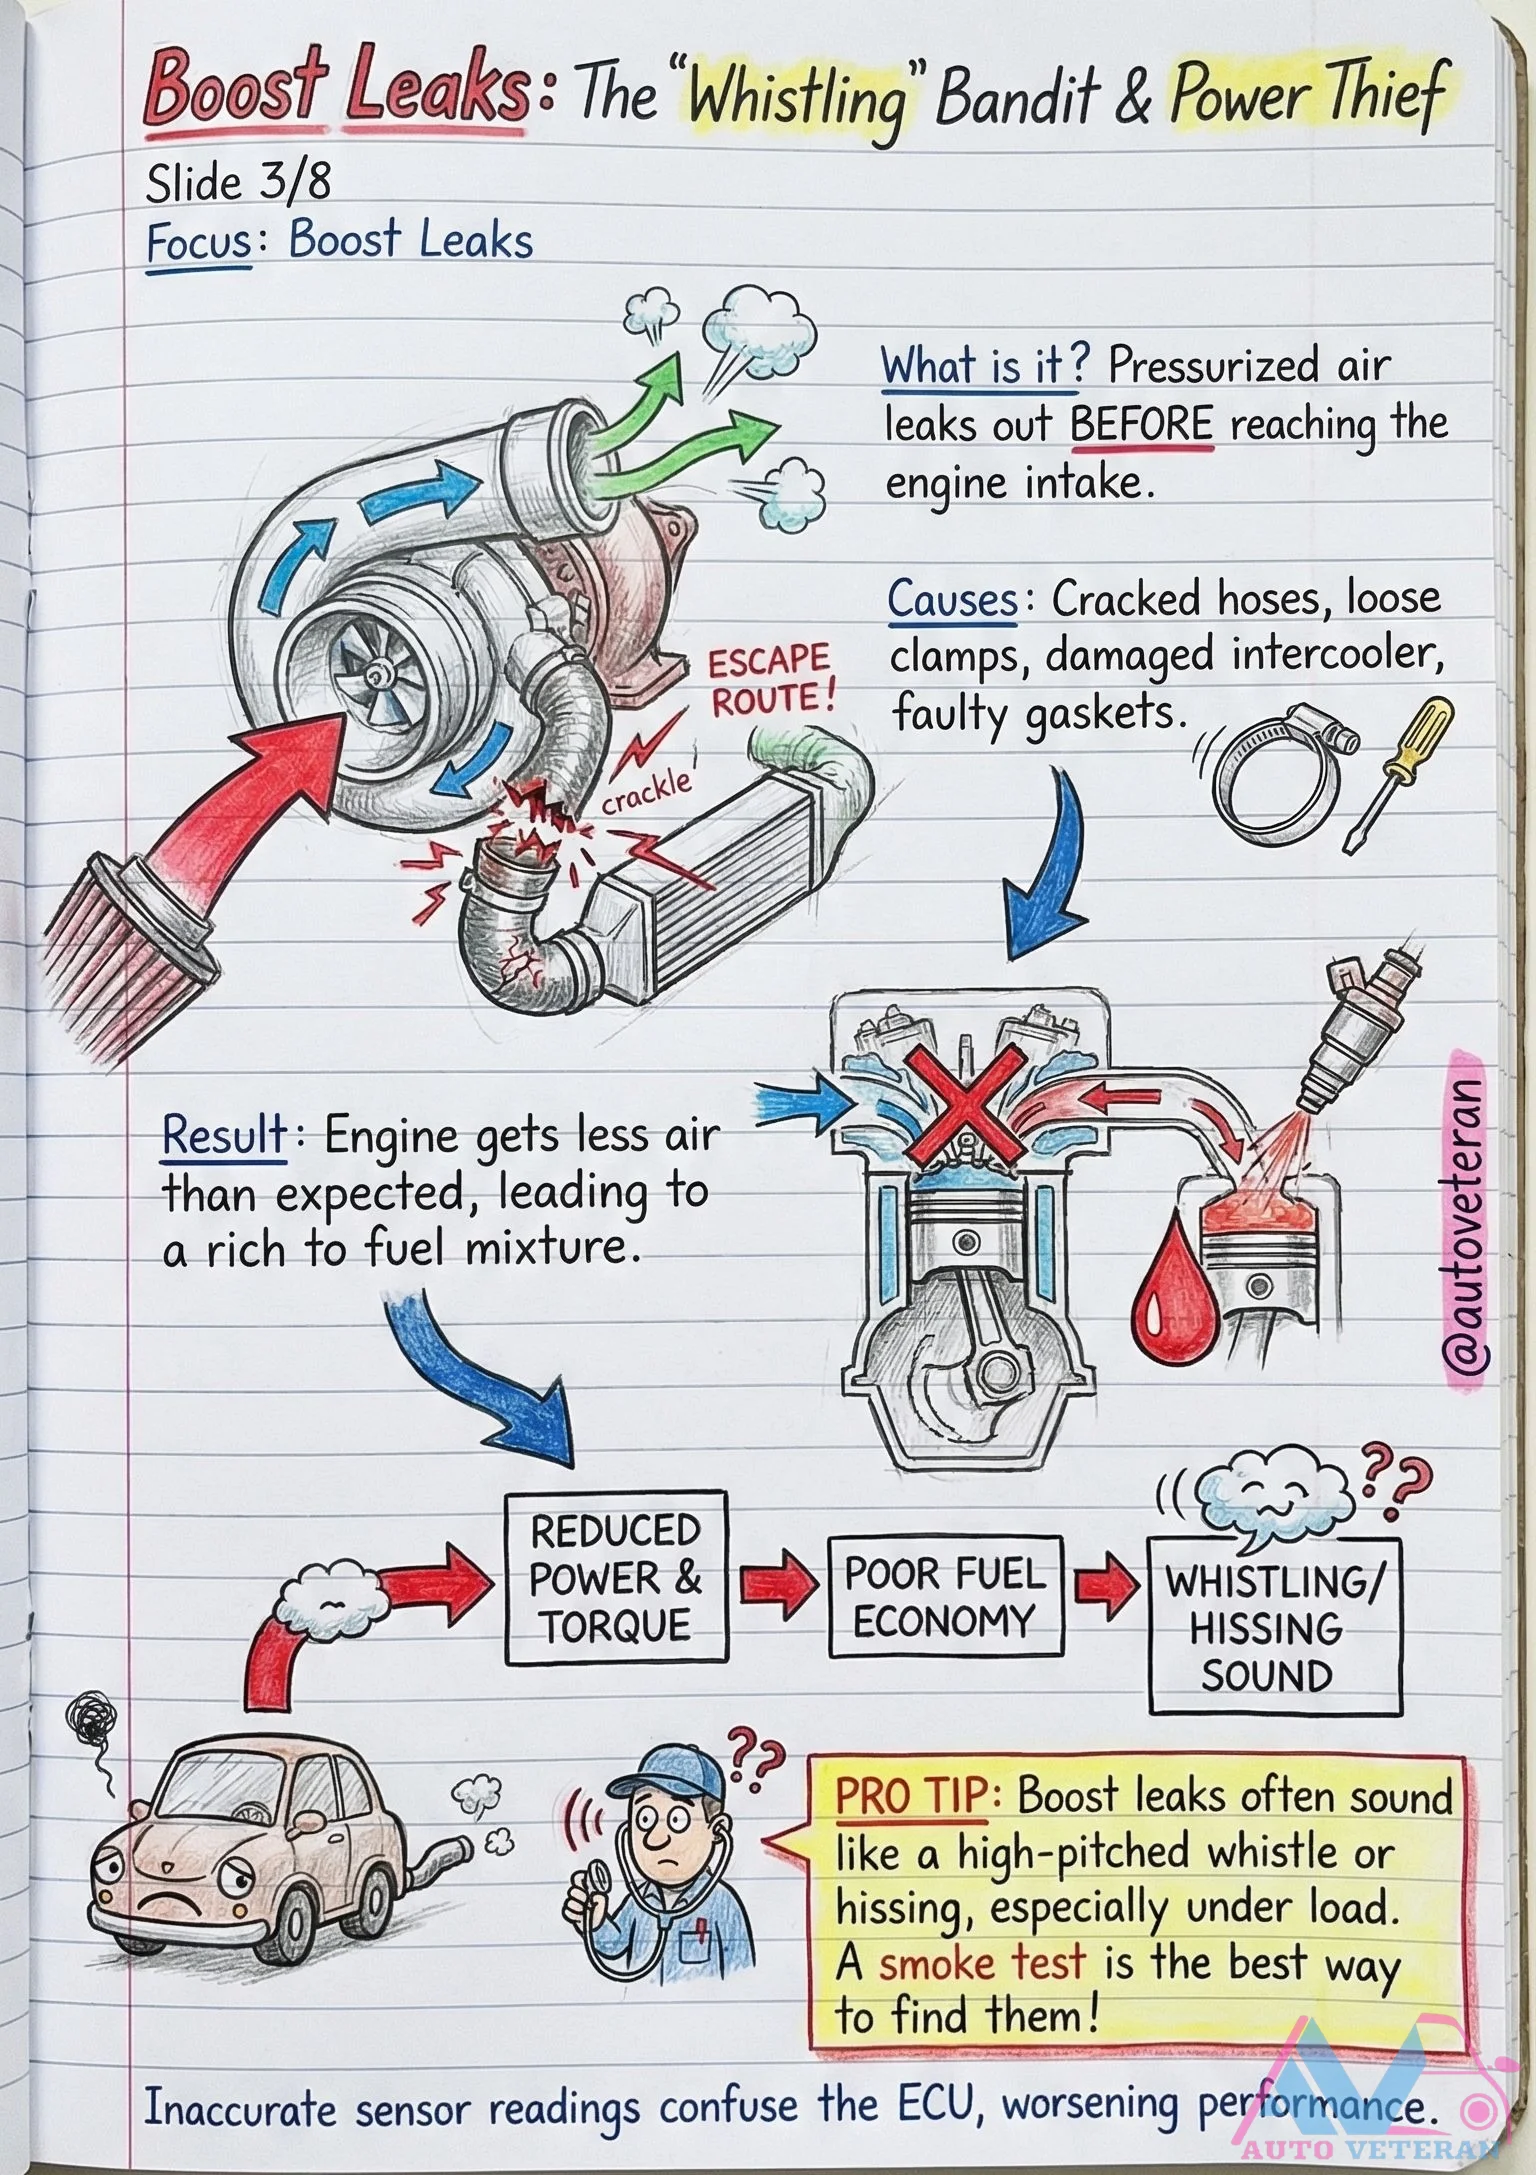 Boost Leaks: The "Whistling" Bandit & Power Thief
Slide 3/8
Focus: Boost Leaks
What is it? Pressurized air
leaks out BEFORE reaching the
engine intake.
Causes: Cracked hoses, loose
clamps, damaged intercooler,
faulty gaskets.
ESCAPE
ROUTE!
crackle
Result: Engine gets less air
than expected, leading to
a rich to fuel mixture.
@autoveteran
REDUCED
POWER &
TORQUE
POOR FUEL
ECONOMY
??
WHISTLING/
HISSING
SOUND
??
PRO TIP: Boost leaks often sound
like a high-pitched whistle or
hissing, especially under load.
A smoke test is the best way
to find them!
Inaccurate sensor readings confuse the ECU, worsening performance.
AV
AUTO VETERAN